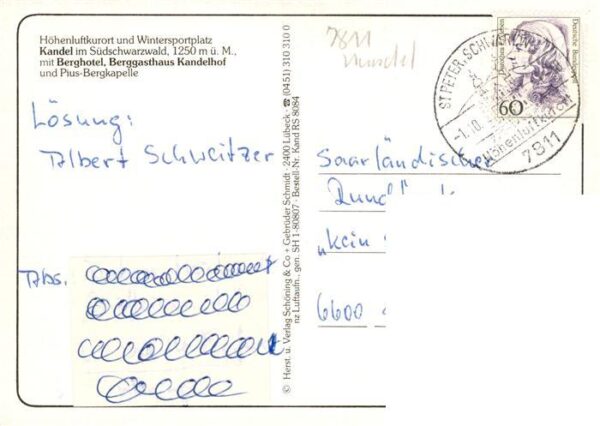 Höhenluftkurort und Wintersportplatz
Kandel im Südschwarzwald, 1250 m ü. M.,
mit Berghotel, Berggasthaus Kandelhof
und Pius-Bergkapelle
Lösung:
Albert Schweitzer
Abs.
© Herst. u. Verlag Schöning & Co + Gebrüder Schmidt · 2400 Lübeck · ☎ (0451) 310 310 0
nz Luftaufn., gen. SH 1-80807 · Bestell-Nr. Kand RS 8084
7811
ST. PETER, SCHWARZW
7811
Deutsche Bundespost
60
Saarländischer
"kein
6600